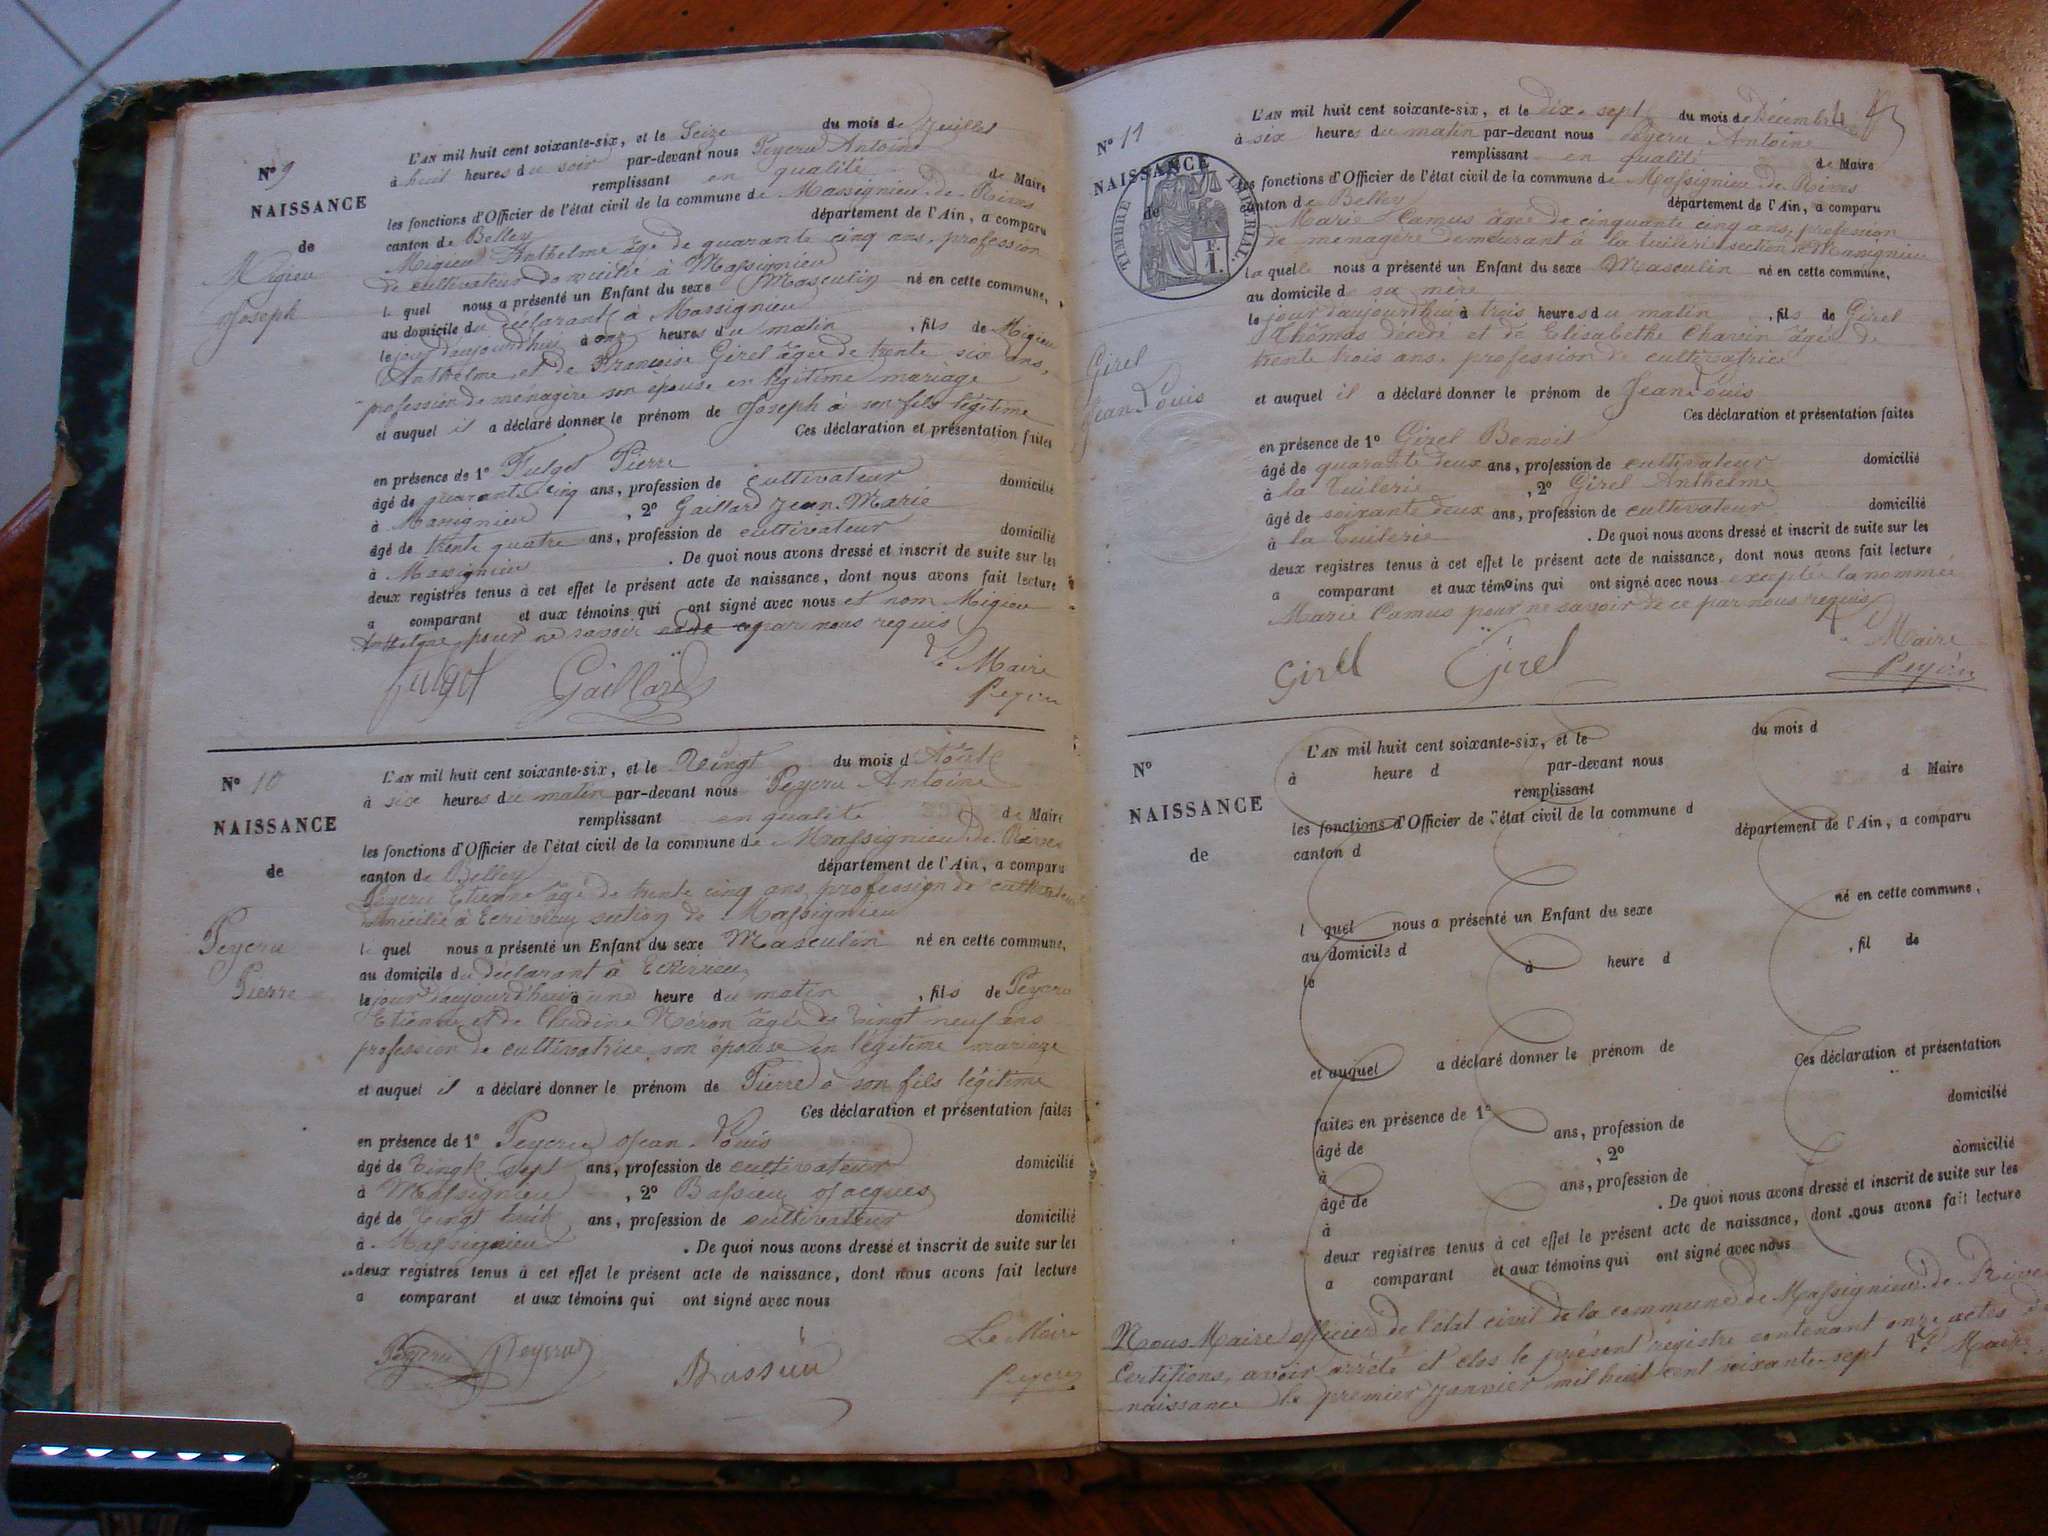 N° 9
NAISSANCE
de
Migieu
Joseph
L'AN mil huit cent soixante-six, et le Seize du mois de Juillet
à huit heures du soir par-devant nous Peycru Antoine
remplissant en qualité de Maire
les fonctions d'Officier de l'état civil de la commune de Massignieu de Rives
canton de Belley département de l'Ain, a comparu
Migieu Anthelme âgé de quarante cinq ans, profession
de cultivateur domicilié à Massignieu
lequel nous a présenté un Enfant du sexe Masculin né en cette commune,
au domicile du déclarant à Massignieu
le jour d'aujourd'hui à onze heures du matin, fils de Migieu
Anthelme et de Françoise Girel âgée de trente six ans,
profession de ménagère son épouse en légitime mariage
et auquel il a déclaré donner le prénom de Joseph à son fils légitime
Ces déclaration et présentation faites
en présence de 1° Fulget Pierre
âgé de quarante cinq ans, profession de cultivateur domicilié
à Massignieu, 2° Gaillard Jean Marie
âgé de trente quatre ans, profession de cultivateur domicilié
à Massignieu. De quoi nous avons dressé et inscrit de suite sur les
deux registres tenus à cet effet le présent acte de naissance, dont nous avons fait lecture
a comparant et aux témoins qui ont signé avec nous et nom Migieu
Anthelme pour ne savoir par nous requis
Le Maire
fulget Gaillard Peycru
N° 10
NAISSANCE
de
Peycru
Pierre
L'AN mil huit cent soixante-six, et le Vingt du mois d Août
à six heures du matin par-devant nous Peycru Antoine
remplissant en qualité de Maire
les fonctions d'Officier de l'état civil de la commune de Massignieu de Rives
canton de Belley département de l'Ain, a comparu
Peycru Etienne âgé de trente cinq ans, profession de cultivateur
domicilié à Ecrivieu section de Massignieu
lequel nous a présenté un Enfant du sexe Masculin né en cette commune,
au domicile du déclarant à Ecrivieu
le jour d'aujourd'hui à une heure du matin, fils de Peycru
Etienne et de Claudine Néron âgée de vingt neuf ans
profession de cultivatrice son épouse en légitime mariage
et auquel il a déclaré donner le prénom de Pierre à son fils légitime
Ces déclaration et présentation faites
en présence de 1° Peycru Jean Louis
âgé de Vingt sept ans, profession de cultivateur domicilié
à Massignieu, 2° Bassieu Jacques
âgé de Vingt huit ans, profession de cultivateur domicilié
à Massignieu. De quoi nous avons dressé et inscrit de suite sur les
deux registres tenus à cet effet le présent acte de naissance, dont nous avons fait lecture
a comparant et aux témoins qui ont signé avec nous
Le Maire
Peycru Peycru Bassieu Peycru
N° 11
NAISSANCE
de
TIMBRE IMPERIAL
F.
1.
Girel
Jean Louis
L'AN mil huit cent soixante-six, et le dix-sept du mois de Décembre
à six heures du matin par-devant nous Peycru Antoine
remplissant en qualité de Maire
les fonctions d'Officier de l'état civil de la commune de Massignieu de Rives
canton de Belley département de l'Ain, a comparu
Marie Camus âgée de cinquante cinq ans, profession
de menagère demeurant à la tuilerie section de Massignieu
laquelle nous a présenté un Enfant du sexe Masculin né en cette commune,
au domicile d sa mère
le jour d'aujourd'hui à trois heures du matin, fils de Girel
Thomas décédé et de Elisabethe Chavin âgée de
trente trois ans, profession de cultivatrice
et auquel il a déclaré donner le prénom de Jean Louis
Ces déclaration et présentation faites
en présence de 1° Girel Benoit
âgé de quarante deux ans, profession de cultivateur domicilié
à la Tuilerie, 2° Girel Anthelme
âgé de soixante deux ans, profession de cultivateur domicilié
à la Tuilerie. De quoi nous avons dressé et inscrit de suite sur les
deux registres tenus à cet effet le présent acte de naissance, dont nous avons fait lecture
a comparant et aux témoins qui ont signé avec nous exepté la nommée
Marie Camus pour ne savoir de ce par nous requis
Le Maire
Girel Girel Peycru
N°
NAISSANCE
de
L'AN mil huit cent soixante-six, et le du mois d
à heure d par-devant nous
remplissant d Maire
les fonctions d'Officier de l'état civil de la commune d
canton d département de l'Ain, a comparu
l quel nous a présenté un Enfant du sexe né en cette commune,
au domicile d
le à heure d , fil de
et auquel a déclaré donner le prénom de
Ces déclaration et présentation
faites en présence de 1°
âgé de ans, profession de domicilié
à , 2°
âgé de ans, profession de domicilié
à . De quoi nous avons dressé et inscrit de suite sur les
deux registres tenus à cet effet le présent acte de naissance, dont nous avons fait lecture
a comparant et aux témoins qui ont signé avec nous
Nous Maire officier de l'état civil de la commune de Massignieu de Rives
Certifions avoir arrêté et clos le présent régistre contenant onze actes de
naissance le premier janvier mil huit cent soixante-sept Le Maire